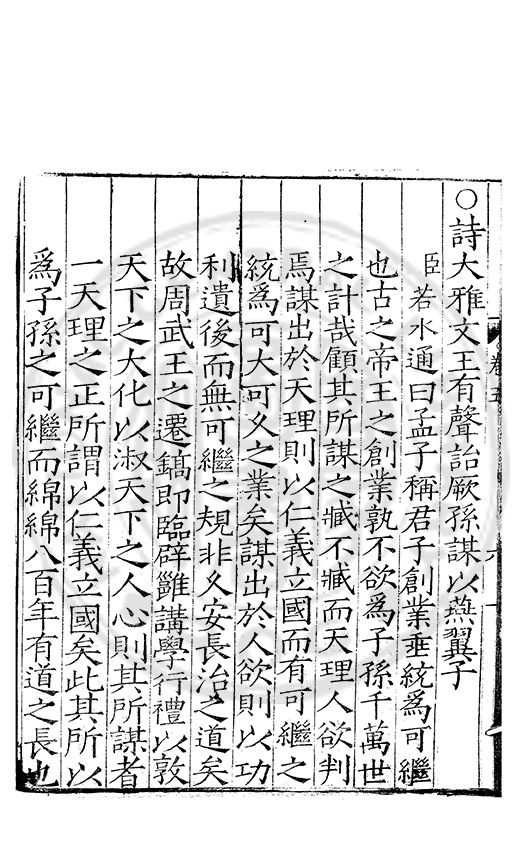 ○詩大雅文王有聲詒厥孫謀以燕翼子
臣若水通曰孟子稱君子創業垂統爲可繼
也古之帝王之創業孰不欲爲子孫千萬世
之計哉顧其所謀之臧不臧而天理人欲判
焉謀出於天理則以仁義立國而有可繼之
統爲可大可久之業矣謀出於人欲則以功
利遺後而無可繼之規非久安長治之道矣
故周武王之遷鎬即臨辟雝講學行禮以敦
天下之大化以淑天下之人心則其所謀者
一天理之正所謂以仁義立國矣此其所以
爲子孫之可繼而綿綿八百年有道之長也